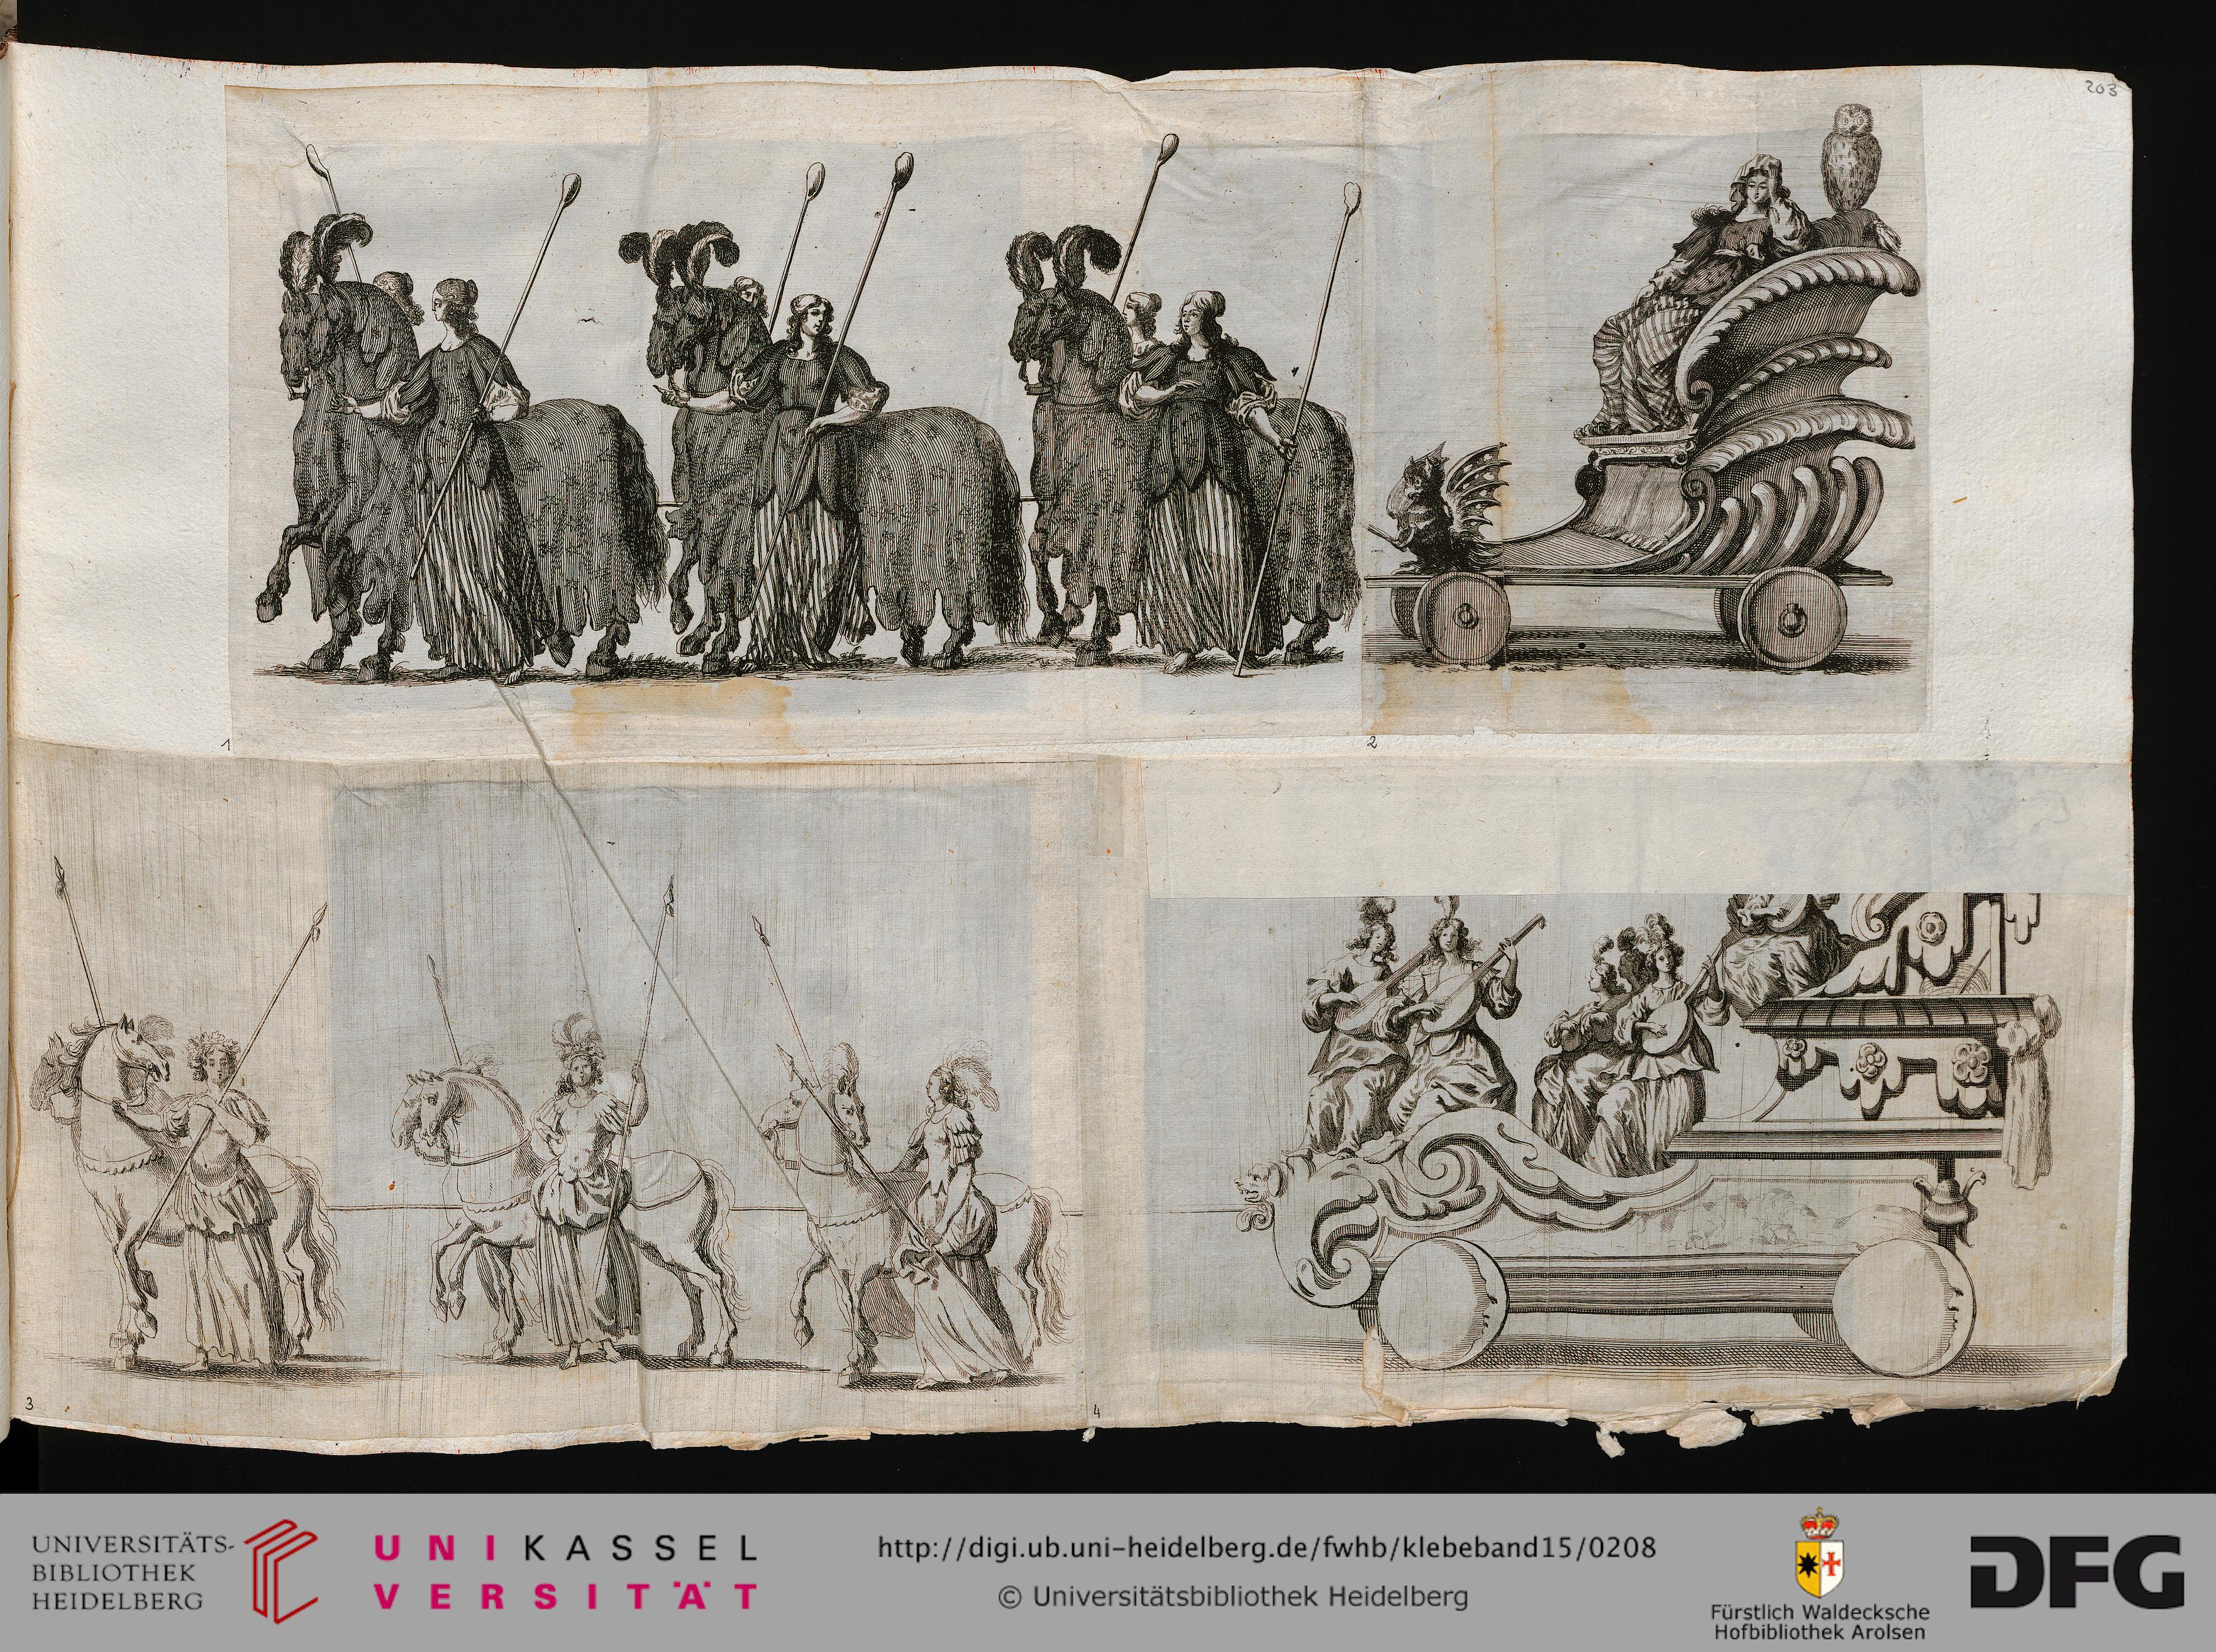 203
1
2
3
4
UNIVERSITÄTS-
BIBLIOTHEK
HEIDELBERG
UNIKASSEL
VERSITÄT
http://digi.ub.uni-heidelberg.de/fwhb/klebeband15/0208
© Universitätsbibliothek Heidelberg
Fürstlich Waldecksche
Hofbibliothek Arolsen
DFG